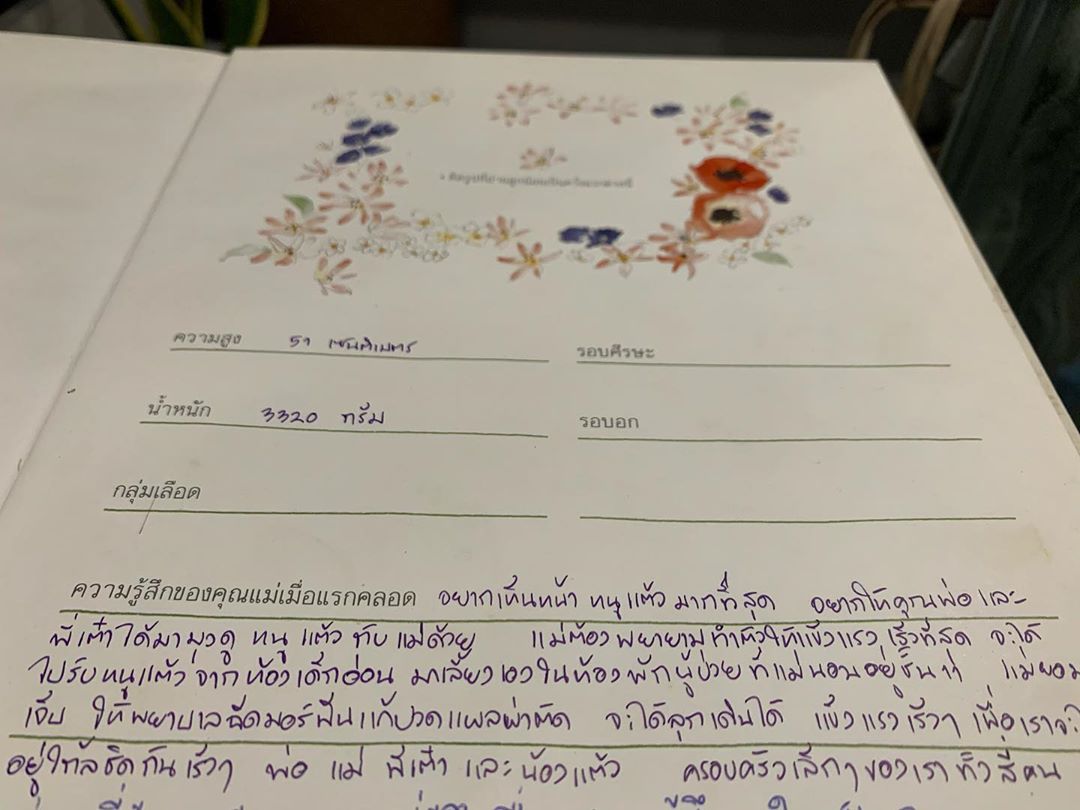 ความสูง 51 เซนติเมตร รอบศีรษะ
น้ำหนัก 3320 กรัม รอบอก
กลุ่มเลือด
ความรู้สึกของคุณแม่เมื่อแรกคลอด อยากเห็นหน้า หนูแต้ว มากที่สุด อยากให้คุณพ่อและ
พี่เต๋าได้มามุงดู หนูแต้ว กับแม่ด้วย แม่ต้องพยายามทำตัวให้แข็งแรงเร็วที่สุด จะได้
ไปรับหนูแต้วจากห้องเด็กอ่อน มาเลี้ยงเองในห้องพักผู้ป่วย ที่แม่นอนอยู่ชั้น 11 แม่ยอม
เจ็บ ให้พยาบาลฉีดมอร์ฟีนแก้ปวดแผลผ่าตัด จะได้ลุกเดินได้ แข็งแรงเร็วๆ เพื่อเราจะได้
อยู่ใกล้ชิดกันเร็วๆ พ่อ แม่ พี่เต๋า และน้องแต้ว ครอบครัวเล็กๆของเราทั้งสี่คน